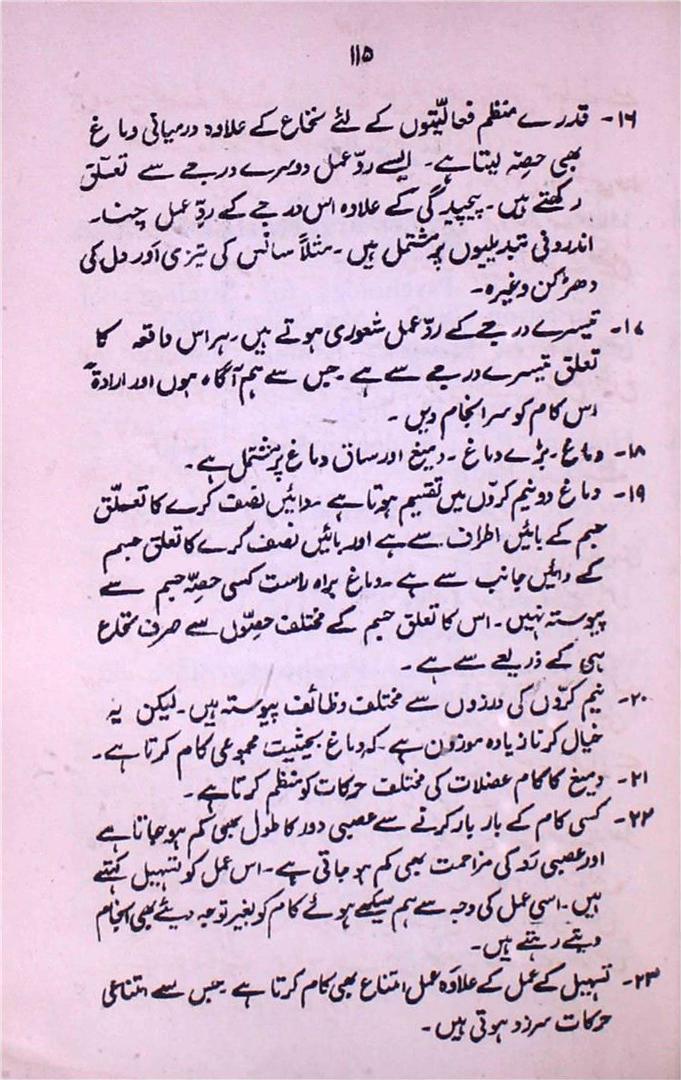 ۱۱۵
۱۶- قدرے منظم فعالیتوں کے لئے نخاع کے علاوہ درمیانی دماغ
بھی حصّہ لیتا ہے۔ ایسے ردِّ عمل دوسرے درجے سے تعلّق
رکھتے ہیں۔ پیچیدگی کے علاوہ اس درجے کے ردِّ عمل چند
اندرونی تبدیلیوں پر مشتمل ہیں۔ مثلاً سانس کی تیزی اور دل کی
دھڑکن وغیرہ۔
۱۷- تیسرے درجے کے ردِّ عمل شعوری ہوتے ہیں۔ ہر اس واقعہ کا
تعلق تیسرے درجے سے ہے۔ جس سے ہم آگاہ ہوں اور ارادۃً
اس کام کو سرانجام دیں۔
۱۸- دماغ۔ بڑے دماغ۔ دمیغ اور ساق دماغ پر مشتمل ہے۔
۱۹- دماغ دو نیم کروں میں تقسیم ہوتا ہے۔ دائیں نصف کرے کا تعلّق
جسم کے بائیں اطراف سے ہے اور بائیں نصف کرے کا تعلق جسم
کے دائیں جانب سے ہے۔ دماغ براہ راست کسی حصّہ جسم سے
پیوستہ نہیں۔ اس کا تعلق جسم کے مختلف حصّوں سے صرف نخاع
ہی کے ذریعے سے ہے۔
۲۰- نیم کروں کی درزوں سے مختلف وظائف پیوستہ ہیں۔ لیکن یہ
خیال کرنا زیادہ موزون ہے۔ کہ دماغ بحیثیت مجموعی کام کرتا ہے۔
۲۱- دمیغ کا کام عضلات کی مختلف حرکات کو منظم کرتا ہے۔
۲۲- کسی کام کے بار بار کرنے سے عصبی دور کا طول بھی کم ہو جاتا ہے
اور عصبی رَو کی مزاحمت بھی کم ہو جاتی ہے۔ اس عمل کو تسہیل کہتے
ہیں۔ اسی عمل کی وجہ سے ہم سیکھے ہوئے کام کو بغیر توجہ دیئے بھی انجام
دیتے رہتے ہیں۔
۲۳- تسہیل کے عمل کے علاوہ عمل امتناع بھی کام کرتا ہے۔ جس سے امتناعی
حرکات سرزد ہوتی ہیں۔